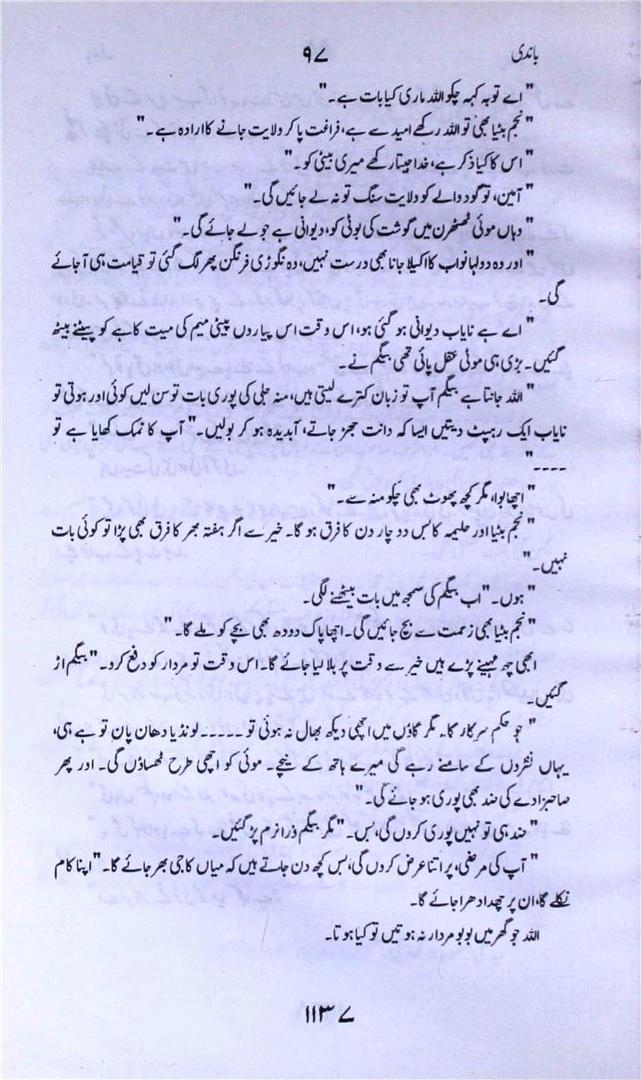 باندی
۹۷
"اے توبہ کہہ چکو اللہ ماری کیا بات ہے۔"
"نجم بٹیا بھی تو اللہ رکھے امید سے ہے، فراغت پا کر ولایت جانے کا ارادہ ہے۔"
"اس کا کیا ذکر ہے، خدا جیتا رکھے میری بیٹی کو۔"
"آمین، تو گود والے کو ولایت سنگ تو نہ لے جائیں گی۔"
"وہاں موئی ٹھٹھرن میں گوشت کی بوٹی کو، دیوانی ہے جو لے جائے گی۔"
"اور وہ دولہا نواب کا اکیلا جانا بھی درست نہیں، وہ نگوڑی فرنگن پھر لگ گئی تو قیامت ہی آجائے
گی۔
"اے ہے نایاب دیوانی ہو گئی ہو، اس وقت اس پیاروں پیٹی میم کی میت کاہے کو پیٹنے بیٹھ
گئیں۔ بڑی ہی موٹی عقل پائی تھی بیگم نے۔
"اللہ جانتا ہے بیگم آپ تو زبان کترے لیتی ہیں، منہ جلی کی پوری بات تو سن لیں کوئی اور ہوتی تو
نایاب ایک رہپٹ دیتیں ایسا کہ دانت جھڑ جاتے، آبدیدہ ہو کر بولیں۔" آپ کا نمک کھایا ہے تو
۔۔۔۔"
"اچھا بوا، مگر کچھ پھوٹ بھی چکو منہ سے۔"
"نجم بٹیا اور حلیمہ کا بس دو چار دن کا فرق ہو گا۔ خیر سے اگر ہفتہ بھر کا فرق بھی پڑا تو کوئی بات
نہیں۔"
ہوں۔" اب بیگم کی سمجھ میں بات بیٹھنے لگی
"نجم بٹیا بھی زحمت سے بچ جائیں گی۔ اچھا پاک دودھ بھی بچے کو ملے گا۔"
ابھی چھ مہینے پڑے ہیں خیر سے وقت پر بلا لیا جائے گا۔ اس وقت تو مردار کو دفع کرو۔" بیگم اڑ
گئیں۔
"جو حکم سرکار کا۔ مگر گاؤں میں اچھی دیکھ بھال نہ ہوئی تو۔۔۔۔۔ لونڈیا دھان پان تو ہے ہی،
یہاں نظروں کے سامنے رہے گی میرے ہاتھ کے نیچے۔ موئی کو اچھی طرح ٹھساؤں گی۔ اور پھر
صاحبزادے کی ضد بھی پوری ہو جائے گی۔"
"ضد ہی تو نہیں پوری کروں گی، بس۔" مگر بیگم ذرا نرم پڑ گئیں۔
"آپ کی مرضی، پر اتنا عرض کروں گی، بس کچھ دن جاتے ہیں کہ میاں کا جی بھر جائے گا۔" اپنا کام
نکلے گا، ان پر چھدا دھرا جائے گا۔
اللہ جو گھر میں بوبو مردار نہ ہوتیں تو کیا ہوتا۔
۱۱۳۷